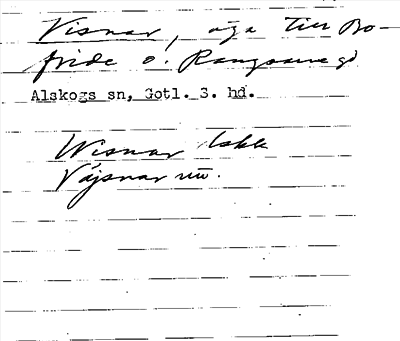 Visnar, äga till Bo-
fride o. Rangsarve gd
Alskogs sn, Gotl. S. hd.
Wisnar lskk
Väjsnar uu.